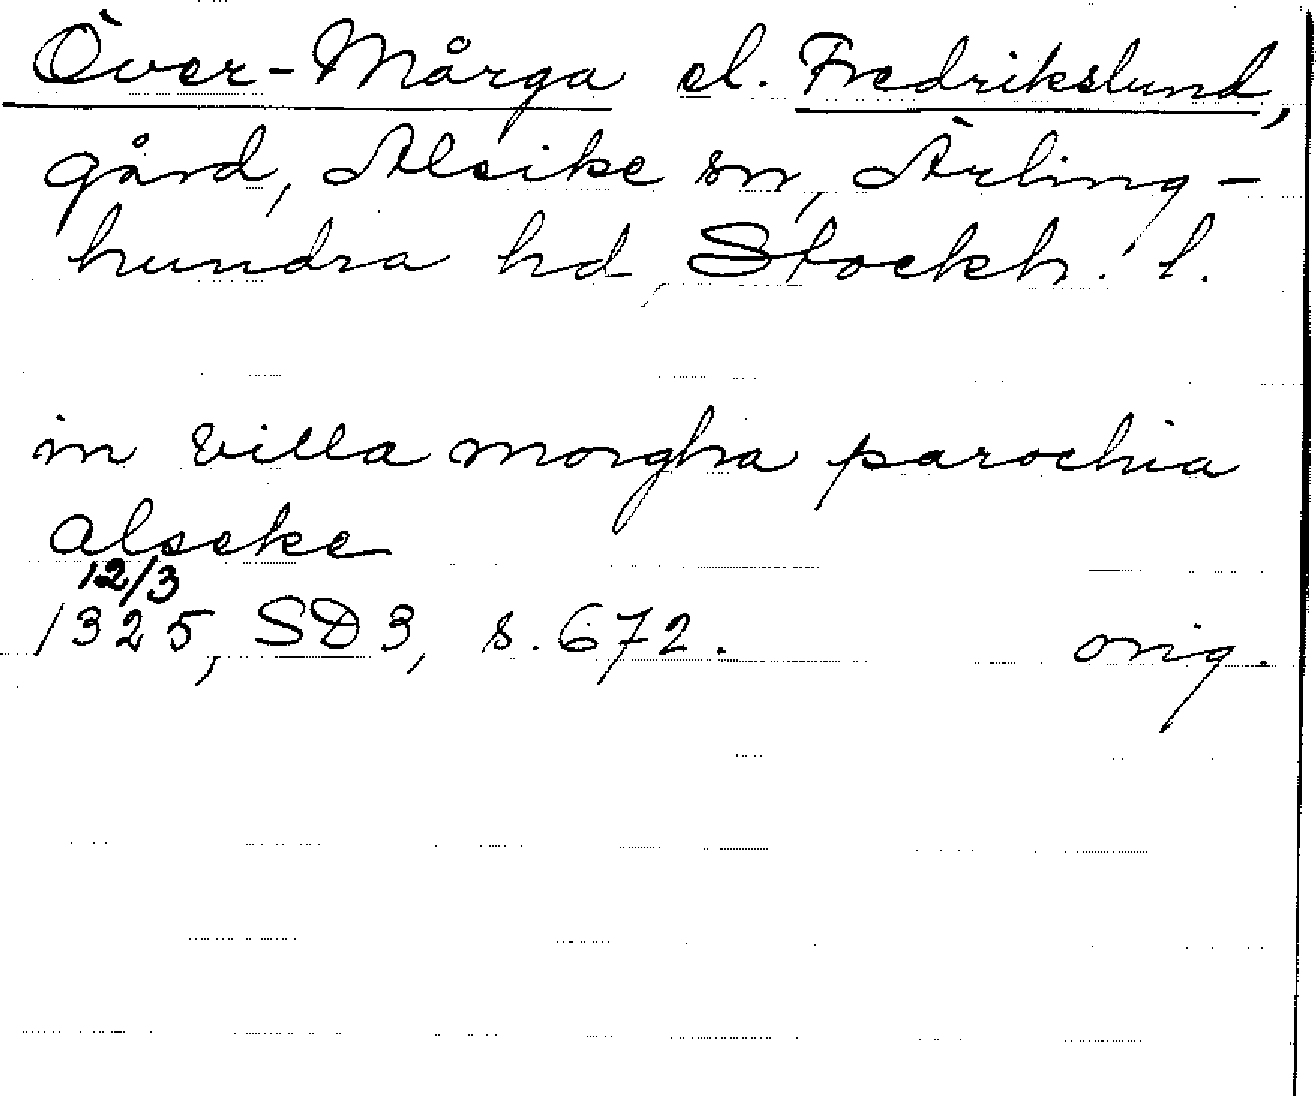 Över-Mårga el. Fredrikslund,
gård, Alsike sn, Ärling-
hundra hd, Stockh. l.
in villa morgha parochia
alseke
12/3
1325, SD 3, s. 672. orig.